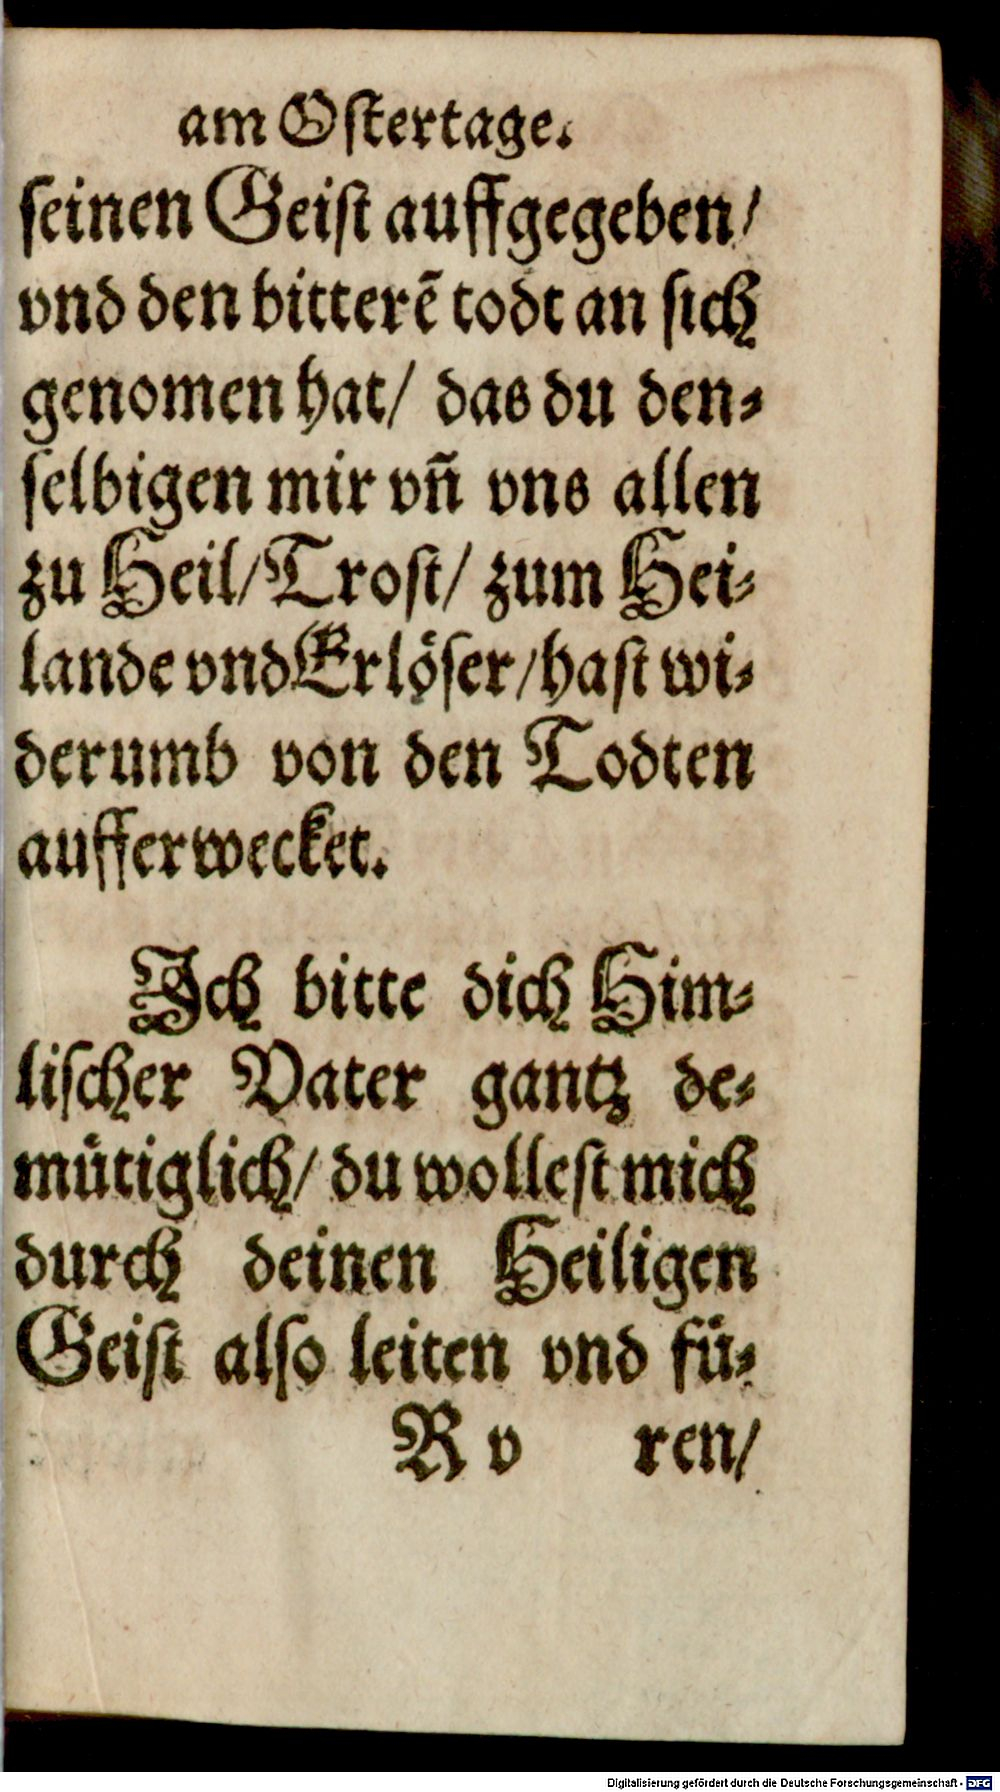 am Oſtertage.
ſeinen Geiſt auffgegeben/
vnd den bitterē todt an ſich
genomen hat/ das du den⸗
ſelbigen mir vn̄ vns allen
zu Heil/Troſt/ zum Hei⸗
lande vnd Erlöſer/haſt wi⸗
derumb von den Todten
aufferwecket.
Ich bitte dich Him⸗
liſcher Vater gantz de⸗
mütiglich/ du wolleſt mich
durch deinen Heiligen
Geiſt alſo leiten vnd fü⸗
R v ren/
Digitalisierung gefördert durch die Deutsche Forschungsgemeinschaft - DFG